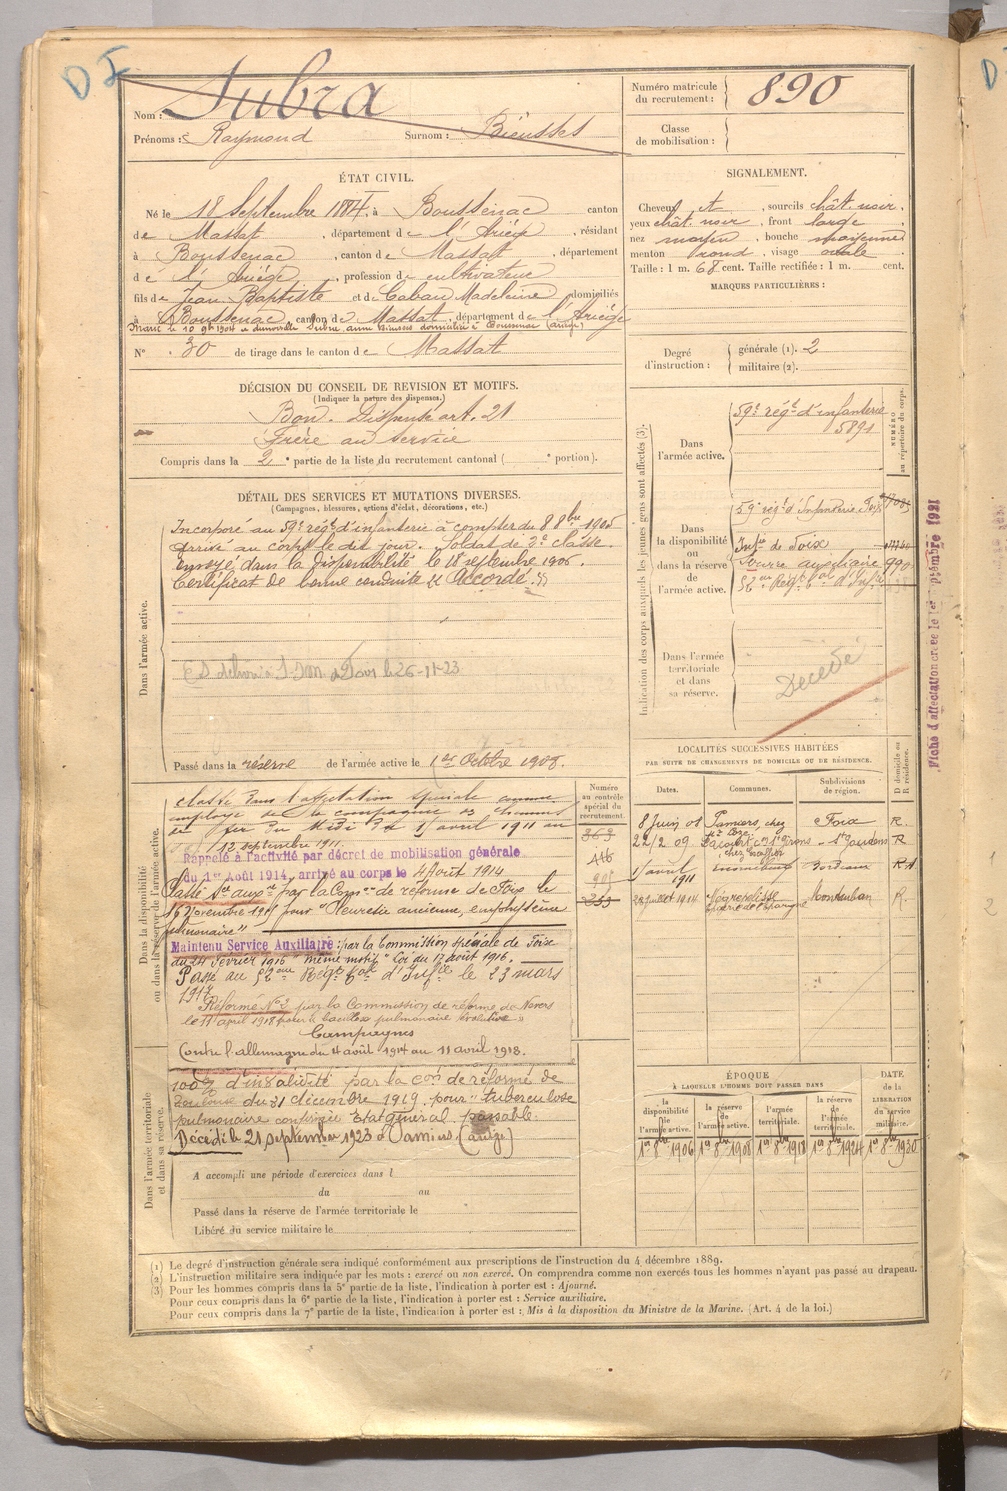 D I
Nom : Subra
Numéro matricule du recrutement : 890
Prénoms : Raymond Surnom : Bieusses
Classe de mobilisation :
ÉTAT CIVIL.
Né le 18 Septembre 1884, à Boussenac canton
de Massat, département de l'Ariège, résidant
à Boussenac, canton de Massat, département
de l'Ariège, profession de cultivateur
fils de Jean Baptiste et de Caban Madeleine domiciliés
à Boussenac, canton de Massat, département de l'Ariège
N° 30 de tirage dans le canton de Massat
SIGNALEMENT.
Cheveux, sourcils chât. noir.
yeux chât. noir, front large
nez moyen, bouche moyenne
menton rond, visage ovale
Taille : 1 m. 68 cent. Taille rectifiée : 1 m. cent.
MARQUES PARTICULIÈRES :
Degré d'instruction : générale (1). 2
militaire (2).
DÉCISION DU CONSEIL DE REVISION ET MOTIFS.
(Indiquer la nature des dispenses.)
Bon. Dispensé art. 21
Frère au service
Compris dans la 2e partie de la liste du recrutement cantonal ( e portion).
DÉTAIL DES SERVICES ET MUTATIONS DIVERSES.
(Campagnes, blessures, actions d'éclat, décorations, etc.)
Dans l'armée active.
Incorporé au 59e régt d'infanterie à compter du 8 8bre 1905
Arrivé au corps le dit jour. Soldat de 2e classe.
Envoyé dans la disponibilité le 18 septembre 1906.
Certificat de bonne conduite Accordé.
le 26-11-23
Passé dans la réserve de l'armée active le 1er Octobre 1908.
Indication des corps auxquels les jeunes gens sont affectés (3).
NUMÉRO au répertoire du corps.
Dans l'armée active.
59e régt d'infanterie
5891
Dans la disponibilité ou dans la réserve de l'armée active.
59e régt d'Infanterie Foix
Infie de Foix
Service auxiliaire 990
Dans l'armée territoriale et dans sa réserve.
Décédé
Fiche d'affectation créée le 1er septembre 1921
LOCALITÉS SUCCESSIVES HABITÉES
PAR SUITE DE CHANGEMENTS DE DOMICILE OU DE RÉSIDENCE.
D domicile ou R résidence.
Dates. Communes. Subdivisions de région.
8 Juin 08 Pamiers, chez Foix R.
22/2 09 St Girons St Gaudens R
1 avril 1911 Bordeaux
28 Juillet 1914 Nègrepelisse Montauban R.
Numéro au contrôle spécial du recrutement.
Dans la disponibilité ou dans la réserve de l'armée active.
Classé dans l'affectation spéciale comme
employé de la compagnie des chemins
de fer du Midi du 1 avril 1911 au
12 septembre 1911.
Rappelé à l'activité par décret de mobilisation générale
du 1er Août 1914, arrivé au corps le 4 Août 1914
Classé Sce auxre par la Comon de réforme de Foix le
16 Novembre 1915 pour "Pleurésie ancienne, emphysème
pulmonaire"
Maintenu Service Auxiliaire par la Commission spéciale de Foix
du 24 Février 1916 "même motif" Loi du 17 août 1915.
Passé au Régt d'Infie le 23 mars
1917
Réformé N° 2 par la Commission de réforme de Nevers
le 11 avril 1918 pour bacillose pulmonaire évolutive"
Campagnes
Contre l'allemagne du 4 août 1914 au 11 avril 1918.
Dans l'armée territoriale et dans sa réserve.
100% d'invalidité par la con de réforme de
Toulouse du 31 décembre 1919. pour "tuberculose
pulmonaire confirmée Etat général passable.
Décédé le 21 septembre 1923 à Pamiers (ariège)
A accompli une période d'exercices dans l
du au
Passé dans la réserve de l'armée territoriale le
Libéré du service militaire le
ÉPOQUE
À LAQUELLE L'HOMME DOIT PASSER DANS
la disponibilité de l'armée active. la réserve de l'armée active. l'armée territoriale. la réserve de l'armée territoriale.
DATE de la LIBÉRATION du service militaire.
1er 8bre 1906 1er 8bre 1908 1er 8bre 1918 1er 8bre 1924 1er 8bre 1930
(1) Le degré d'instruction générale sera indiqué conformément aux prescriptions de l'instruction du 4 décembre 1889.
(2) L'instruction militaire sera indiquée par les mots : exercé ou non exercé. On comprendra comme non exercés tous les hommes n'ayant pas passé au drapeau.
(3) Pour les hommes compris dans la 5e partie de la liste, l'indication à porter est : Ajourné.
Pour ceux compris dans la 6e partie de la liste, l'indication à porter est : Service auxiliaire.
Pour ceux compris dans la 7e partie de la liste, l'indication à porter est : Mis à la disposition du Ministre de la Marine. (Art. 4 de la loi.)